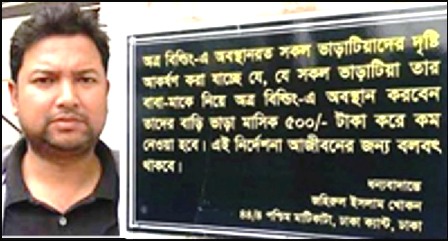 অত্র বিল্ডিং-এ অবস্থানরত সকল ভাড়াটিয়াদের দৃষ্টি
আকর্ষণ করা যাচ্ছে যে, যে সকল ভাড়াটিয়া তার
বাবা-মাকে নিয়ে অত্র বিল্ডিং-এ অবস্থান করবেন
তাদের বাড়ি ভাড়া মাসিক ৫০০/- টাকা করে কম
নেওয়া হবে। এই নির্দেশনা আজীবনের জন্য বলবৎ
থাকবে।
ধন্যবাদান্তে
জহিরুল ইসলাম খোকন
৪৪/৪ পশ্চিম মাটিকাটা, ঢাকা ক্যান্ট, ঢাকা